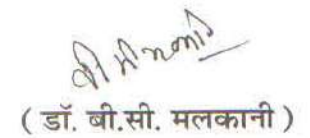 ( डॉ. बी.सी. मलकानी )